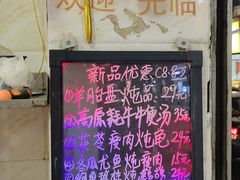 欢迎 光临
新品优惠C8.8-2
①羊胎盘炖品 29元
②高原牦牛牛煲汤 35元
③茯苓瘦肉炖龟 24元
④冬瓜尤鱼炖瘦肉 15元